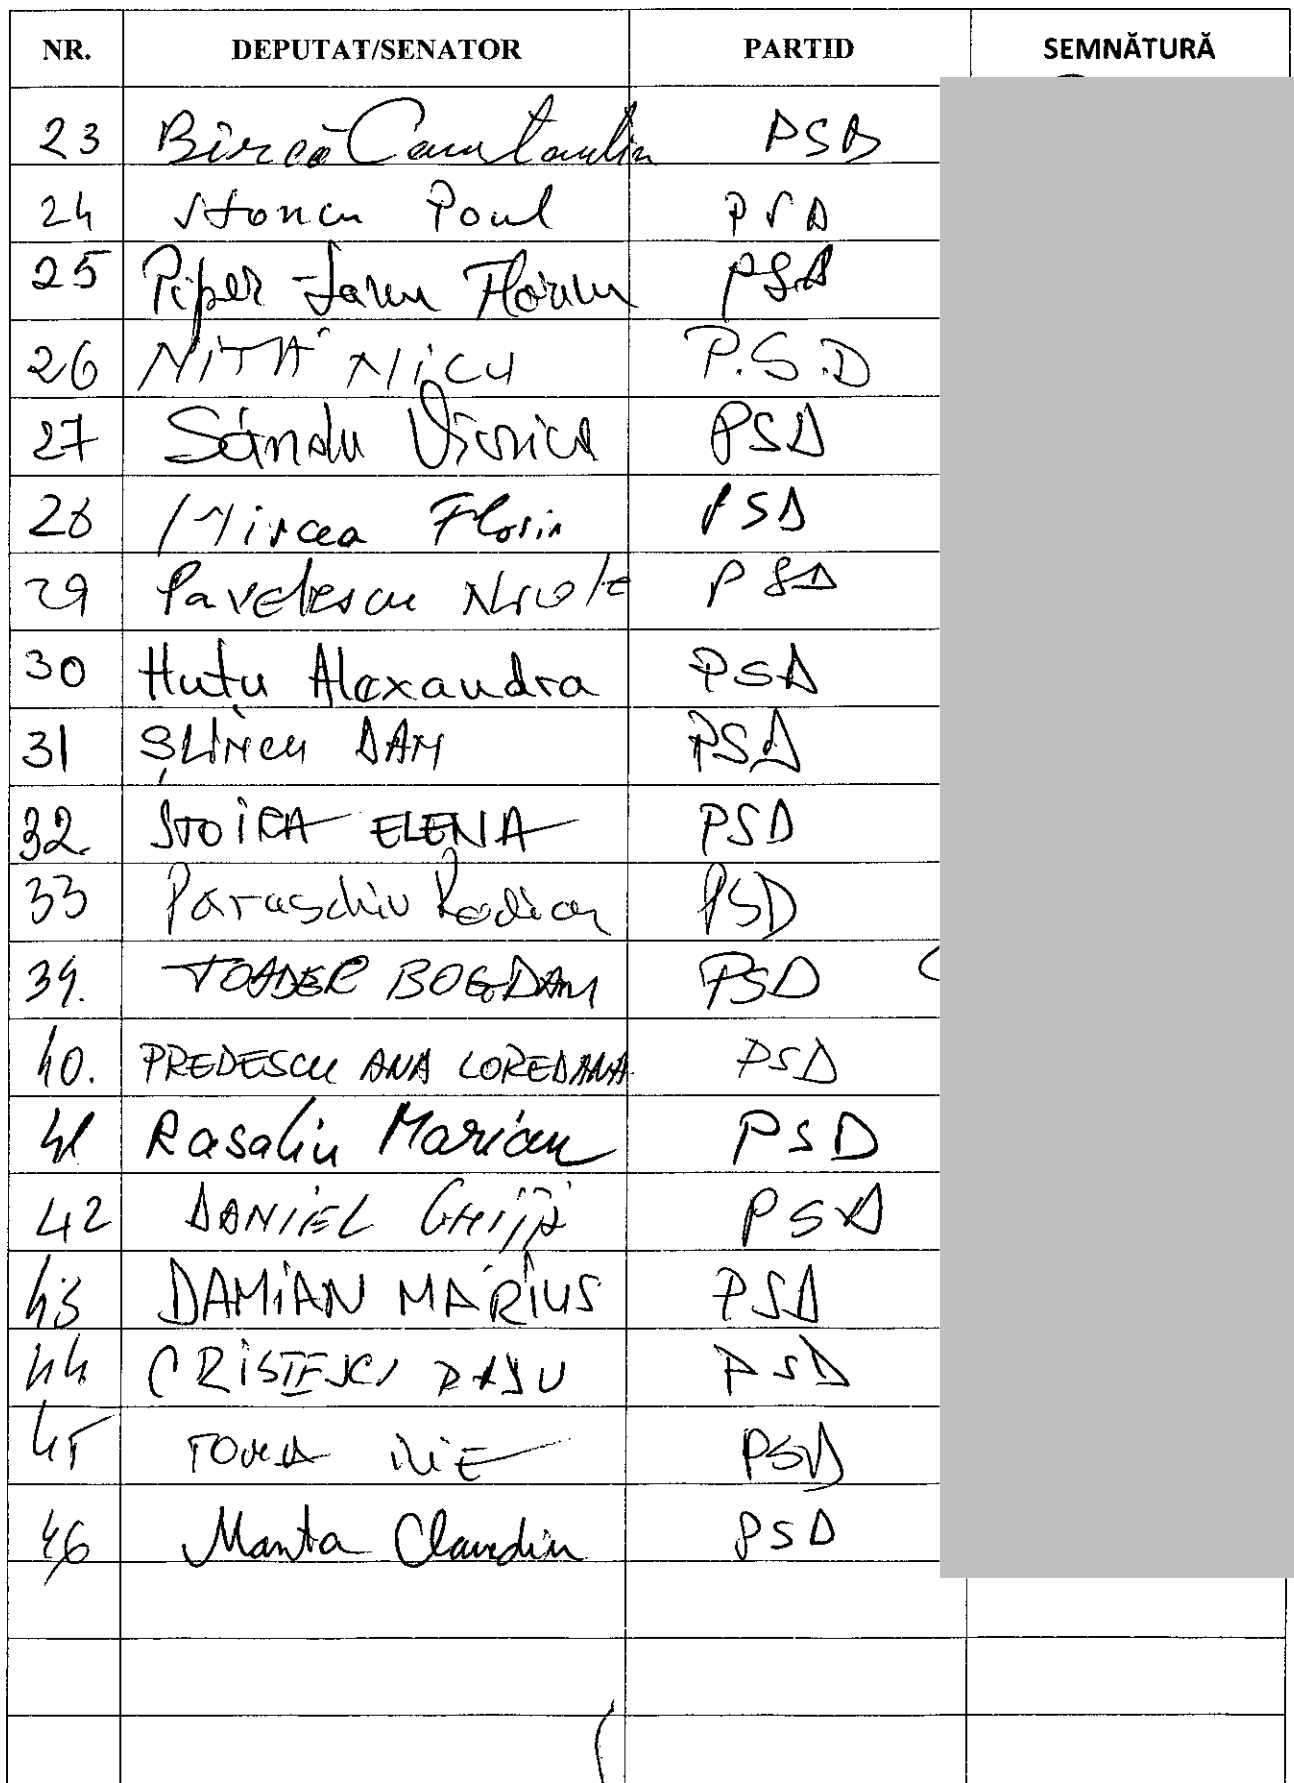 NR. DEPUTAT/SENATOR PARTID SEMNĂTURĂ
23 Bîrcă Constantin PSD
24 Stancu Paul PSD
25 Piper Florin PSD
26 NIȚĂ NICU P.S.D
27 Sandu Viorica PSD
28 Mircea Florin PSD
29 Pavelescu PSD
30 Huțu Alexandra PSD
31 ȘLINCU DAN PSD
32. STOICA ELENA PSD
33 Paraschiv Rodica PSD
39. TOADER BOGDAN PSD
40. PREDESCU ANA LOREDANA PSD
41 Rasaliu Marian PSD
42 DANIEL GHIȚĂ PSD
43 DAMIAN MARIUS PSD
44 CRISTESCU RADU PSD
45 TOMA ILIE PSD
46 Manta Claudiu PSD